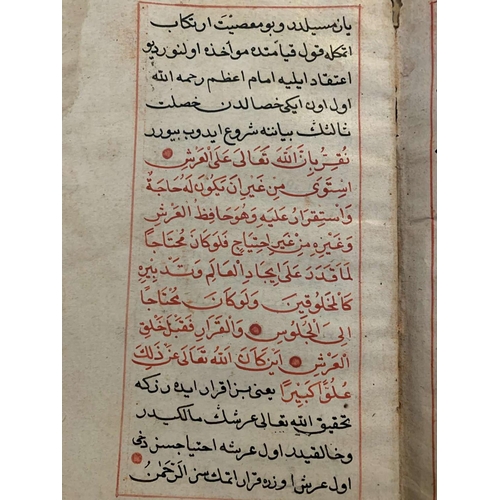 یازمسیلدر و بو معصیت ارتكاب
اتمكله قول قیامتده مؤاخذه اولنور دیو
اعتقاد ایلیه امام اعظم رحمه الله
اول اون ایكی خصالدن خصلت
ثالثك بیاننه شروع ایدوب بیورر
نُقِرُّ بِاَنَّ اللهَ تَعَالٰى عَلَى الْعَرْشِ
اسْتَوٰى مِنْ غَيْرِ اَنْ يَكُونَ لَهُ حَاجَةٌ
وَاسْتِقْرَارٌ عَلَيْهِ وَهُوَ حَافِظُ الْعَرْشِ
وَغَيْرِهِ مِنْ غَيْرِ احْتِيَاجٍ فَلَوْ كَانَ مُحْتَاجًا
لَمَا قَدَرَ عَلٰى اِيجَادِ الْعَالَمِ وَتَدْبِيرِهِ
كَالْمَخْلُوقِينَ وَلَوْ كَانَ مُحْتَاجًا
اِلَى الْجُلُوسِ وَالْقَرَارِ فَقَبْلَ خَلْقِ
الْعَرْشِ اَيْنَ كَانَ اللهُ تَعَالٰى عَنْ ذٰلِكَ
عُلُوًّا كَبِيرًا یعنی بز اقرار ایده رز كه
تحقیق الله تعالی عرشك مالكیدر
و خالقیدر اول عرشه احتیاجسز دخی
اول عرش اوزره قرار اتمك سز الرَّحْمٰنُ